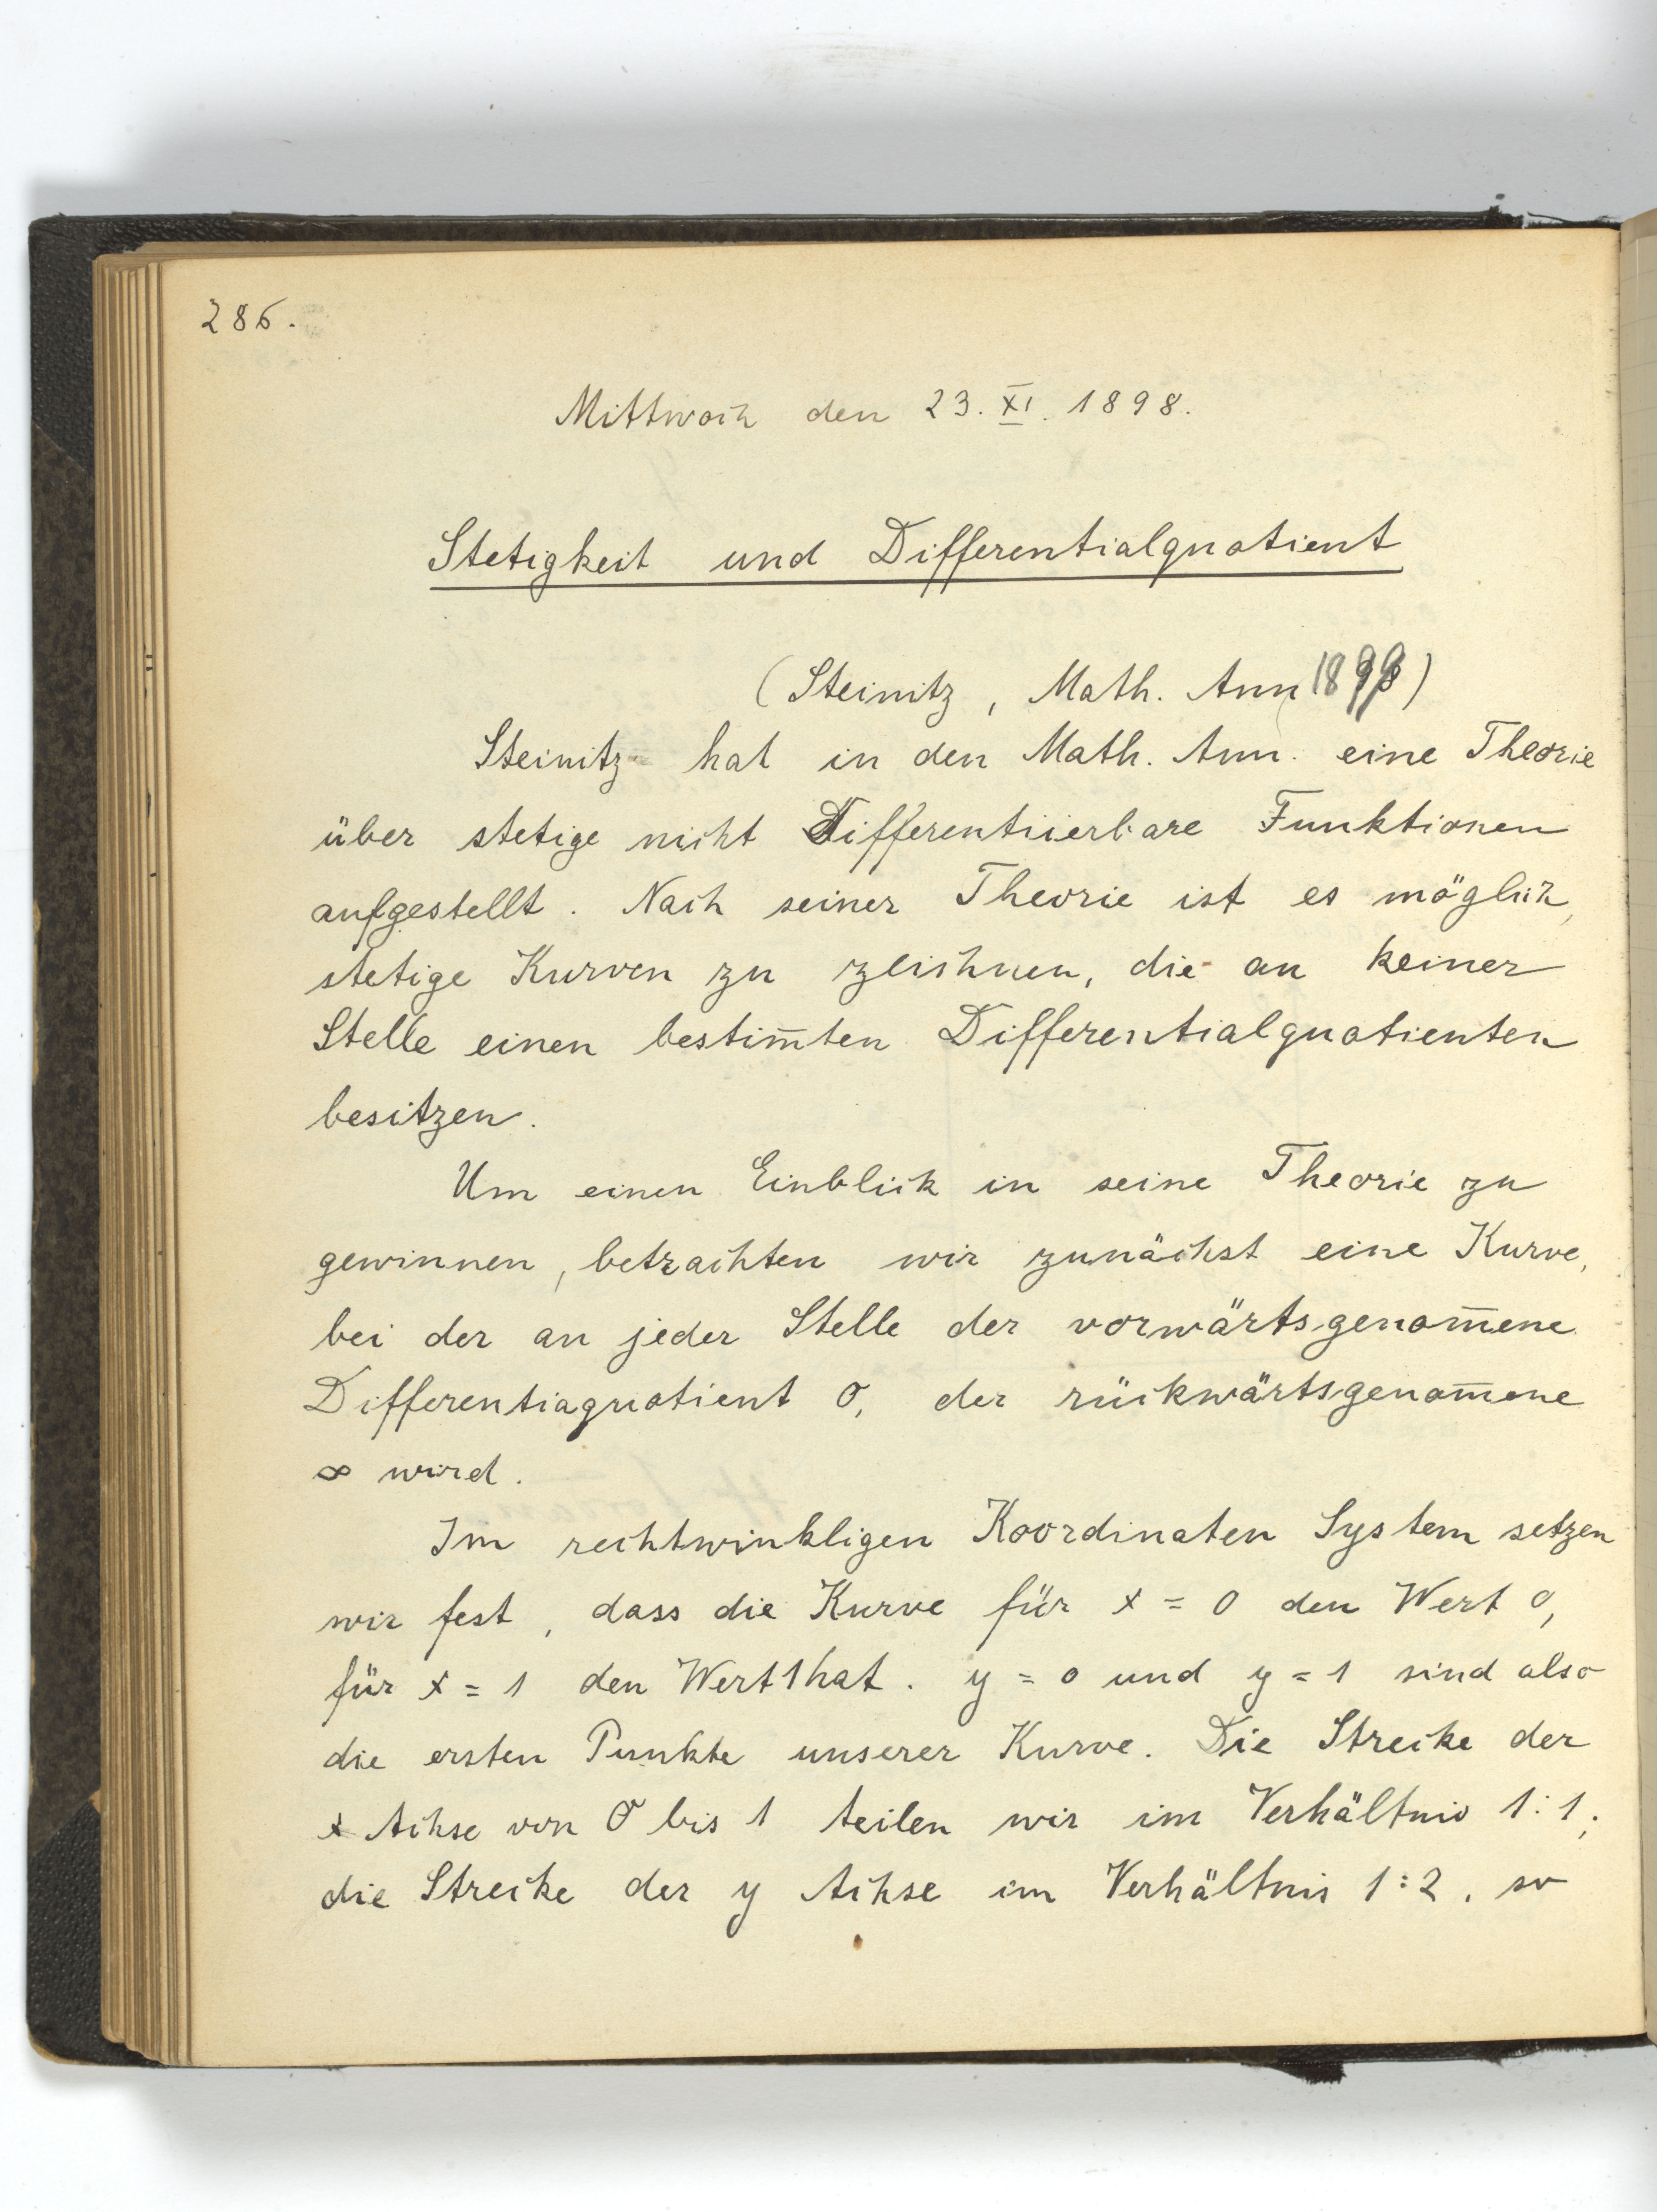 286.
Mittwoch den 23. XI. 1898.
Stetigkeit und Differentialquotient
(Steinitz, Math. Ann 1899)
Steinitz hat in den Math. Ann. eine Theorie
über stetige nicht Differentiierbare Funktionen
aufgestellt. Nach seiner Theorie ist es möglich,
stetige Kurven zu zeichnen, die an keiner
Stelle einen bestim̄ten Differentialquotienten
besitzen.
Um einen Einblick in seine Theorie zu
gewinnen, betrachten wir zunächst eine Kurve,
bei der an jeder Stelle der vorwärtsgenom̄ene
Differentiaquotient 0, der rückwärtsgenom̄ene
∞ wird.
Im rechtwinkligen Koordinaten System setzen
wir fest, dass die Kurve für x = 0 den Wert 0,
für x = 1 den Wert 1 hat. y = 0 und y = 1 sind also
die ersten Punkte unserer Kurve. Die Strecke der
x Achse von 0 bis 1 teilen wir im Verhältnis 1:1;
die Strecke der y Achse im Verhältnis 1:2, so